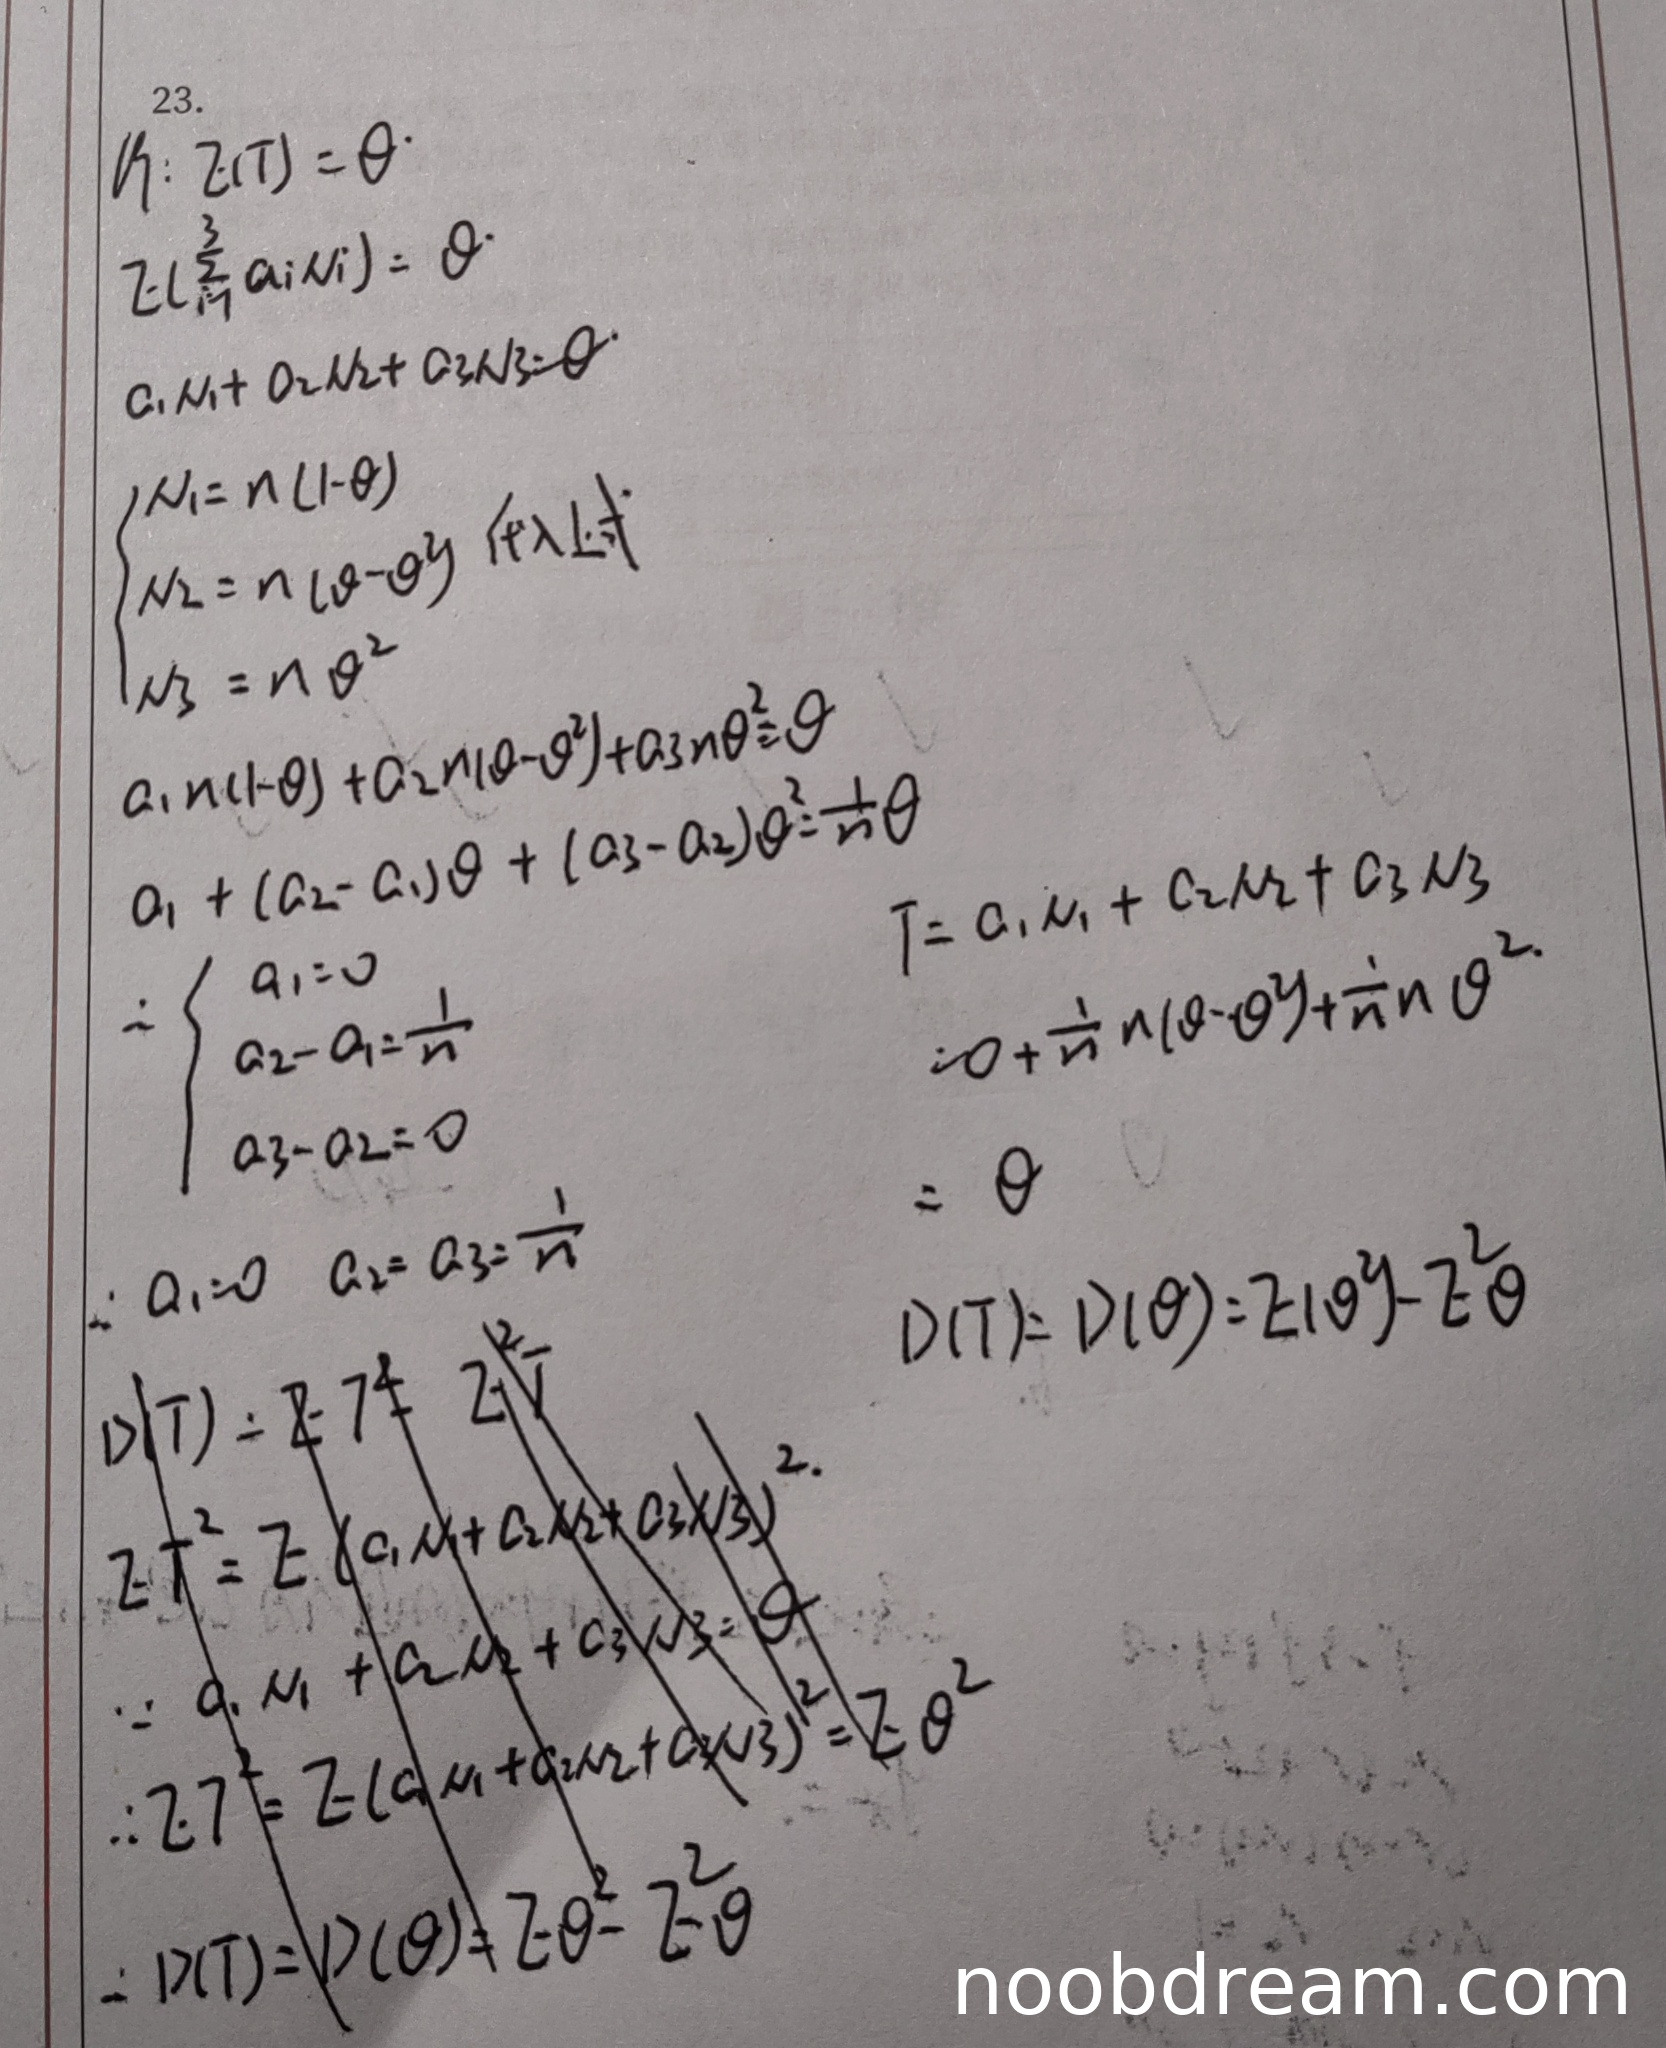 23.
解: E(T) = θ.
E(∑_{i=1}^{3} aiNi) = θ.
a₁N₁ + a₂N₂ + a₃N₃ = θ.
N₁ = n(1-θ)
N₂ = n(θ-θ²) 代入上式.
N₃ = nθ²
a₁n(1-θ) + a₂n(θ-θ²) + a₃nθ² = θ
a₁ + (a₂-a₁)θ + (a₃-a₂)θ² = 1/n θ
∴ { a₁=0
a₂-a₁ = 1/n
a₃-a₂ = 0
∴ a₁=0 a₂=a₃=1/n
D(T) = ET² - E²T
ET² = E(a₁N₁ + a₂N₂ + a₃N₃)².
∵ a₁N₁ + a₂N₂ + a₃N₃ = θ
∴ ET² = E(a₁N₁ + a₂N₂ + a₃N₃)² = Eθ²
∴ D(T) = D(θ) = Eθ² - E²θ
T = a₁N₁ + a₂N₂ + a₃N₃
=0 + 1/n n(θ-θ²) + 1/n nθ².
= θ
D(T) = D(θ) = E(θ²) - E²θ
noobdream.com